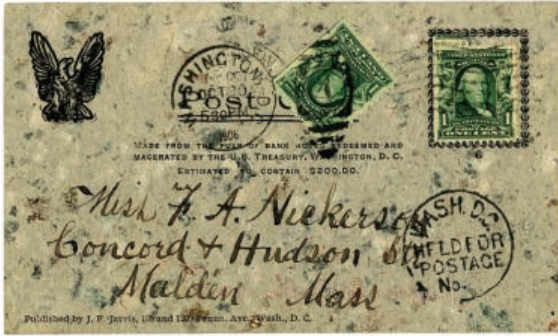 WASHINGTON, D.C.
OCT 20
5-30P
1906
Post C
MADE FROM THE PULP OF BANK NOTES REDEEMED AND
MACERATED BY THE U.S. TREASURY, WASHINGTON, D. C.
ESTIMATED TO CONTAIN $200.00.
1
1
POSTAGE
ONE CENT
Miss F. A. Nickerson
Concord + Hudson St
Malden Mass
WASH. D.C.
HELD FOR
POSTAGE
No.
Published by J. F. Jarvis, Penn. Ave., Wash., D. C.